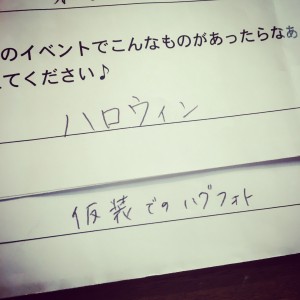 のイベントでこんなものがあったらなぁ
てください♪
ハロウィン
仮装でのハグフォト